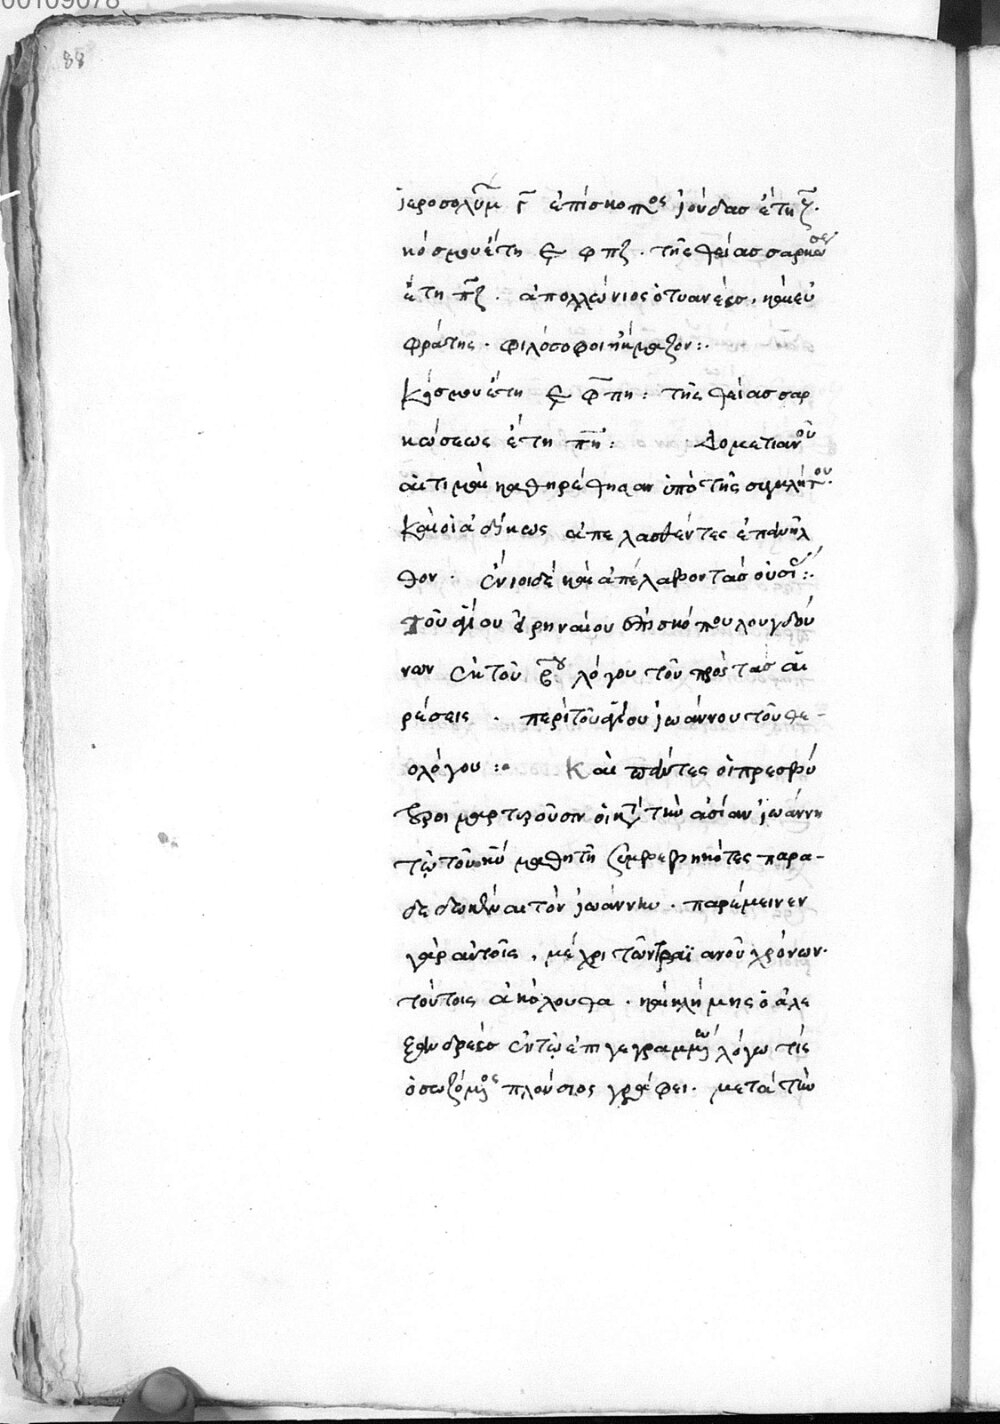 00109078
88
ἱεροσολύμ γ ἐπίσκοπος ἰούδας ἔτη ζ.
κόσμου ἔτη ε φπζ. τῆς θείας σαρκώσε
ἔτη πζ. ἀπολλώνιος ὁ τυανεὺς, καὶ εὐ
φράτης. φιλόσοφοι ἤκμαζον:.
Κόσμου ἔτη ε φπη: τῆς θείας σαρ
κώσεως ἔτη πη: Δομετιανοῦ
αἱ τιμαὶ καθηρέθησαν ὑπὸ τῆς συγκλήτου.
Καὶ οἱ ἀδίκως ἀπελασθέντες ἐπανῆλ
θον. ἔνιοι δὲ καὶ ἀπέλαβον τὰς οὐσί:.
τοῦ ἁγίου εἰρηναίου ἐπισκόπου λουγδού
νων ἐκ τοῦ β̅ου λόγου τοῦ πρὸς τὰς αἱ
ρέσεις. περὶ τοῦ ἁγίου ἰωάννου τοῦ θε-
ολόγου: Καὶ πάντες οἱ πρεσβύ
τεροι μαρτυροῦσιν οἱ κατὰ τὴν ἀσίαν ἰωάννη
τῷ τοῦ κυ μαθητῇ συμβεβηκότες παρα-
δεδωκέναι τὸν ἰωάννην. παρέμεινεν
γὰρ αὐτοῖς, μέχρι τῶν τραϊανοῦ χρόνων.
τούτοις ἀκόλουθα. καὶ κλήμης ὁ ἀλε
ξανδρεὺς ἐν τῷ ἐπιγεγραμμένω λόγω τίς
ὁ σωζόμενος πλούσιος γράφει. μετὰ τὴν